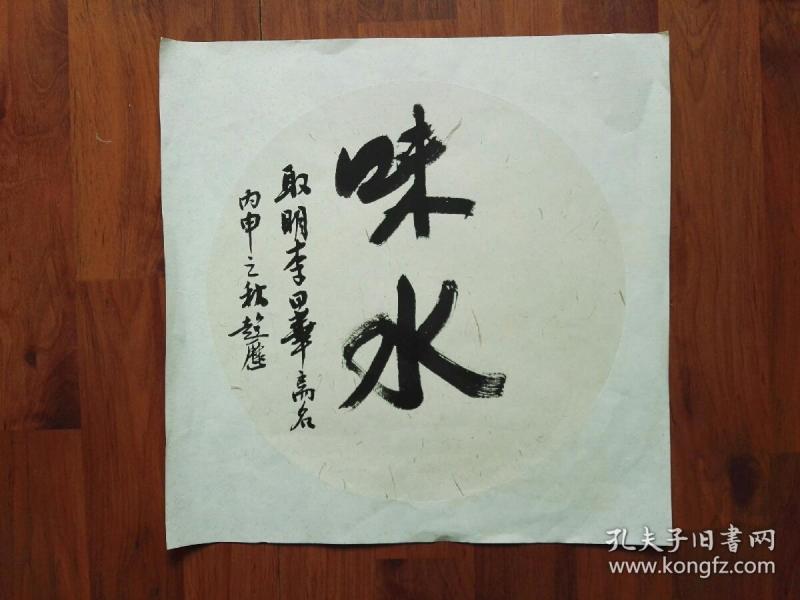 味水
取明李日華斋名
丙申之秋趙
孔夫子旧書网
www.kongfz.com